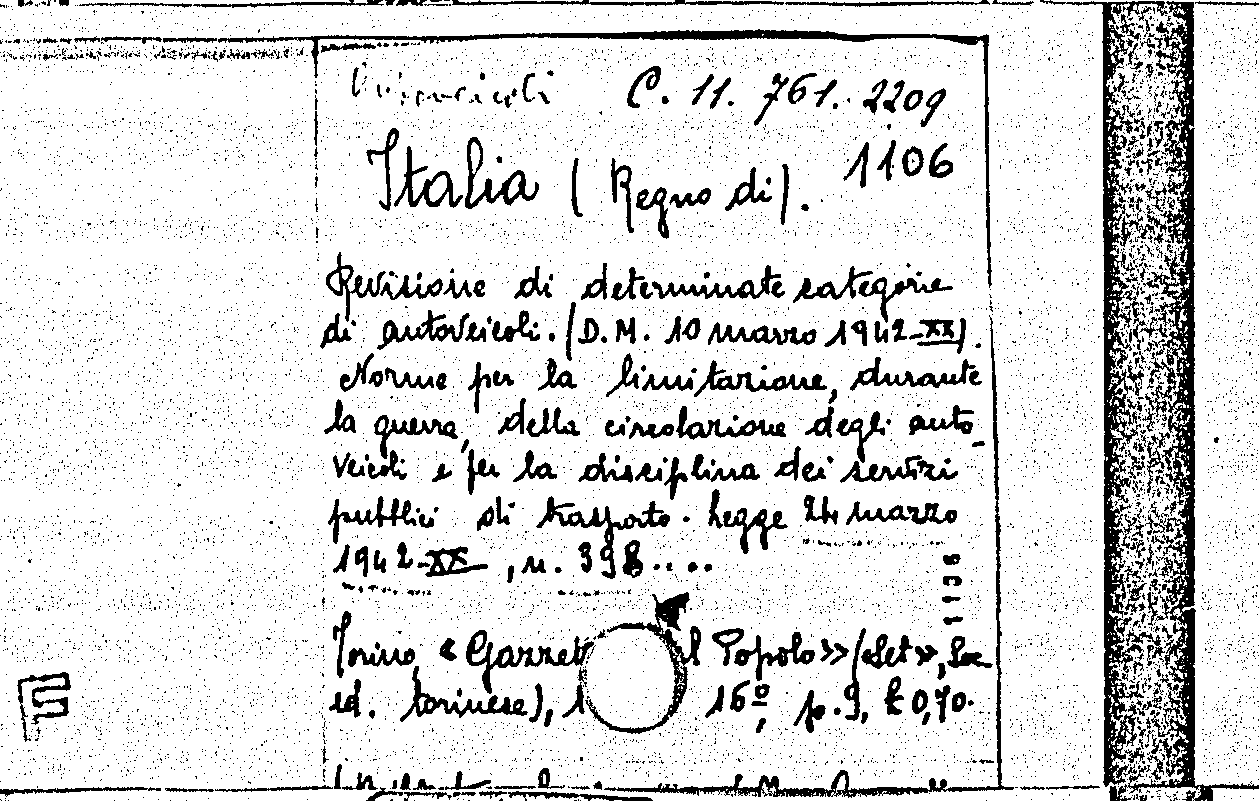 C. 11. 761. 2209
1106
Italia (Regno di).
Revisione di determinate categorie
di autoveicoli. (D.M. 10 marzo 1942-XX).
Norme per la limitazione, durante
la guerra, della circolazione degli auto-
veicoli e per la disciplina dei servizi
pubblici di trasporto. Legge 24 marzo
1942-XX, n. 398....
1138
Torino, «Gazzet l Popolo» («Set», Soc.
ed. torinese), 1 16º, p. 9, £ 0,70.